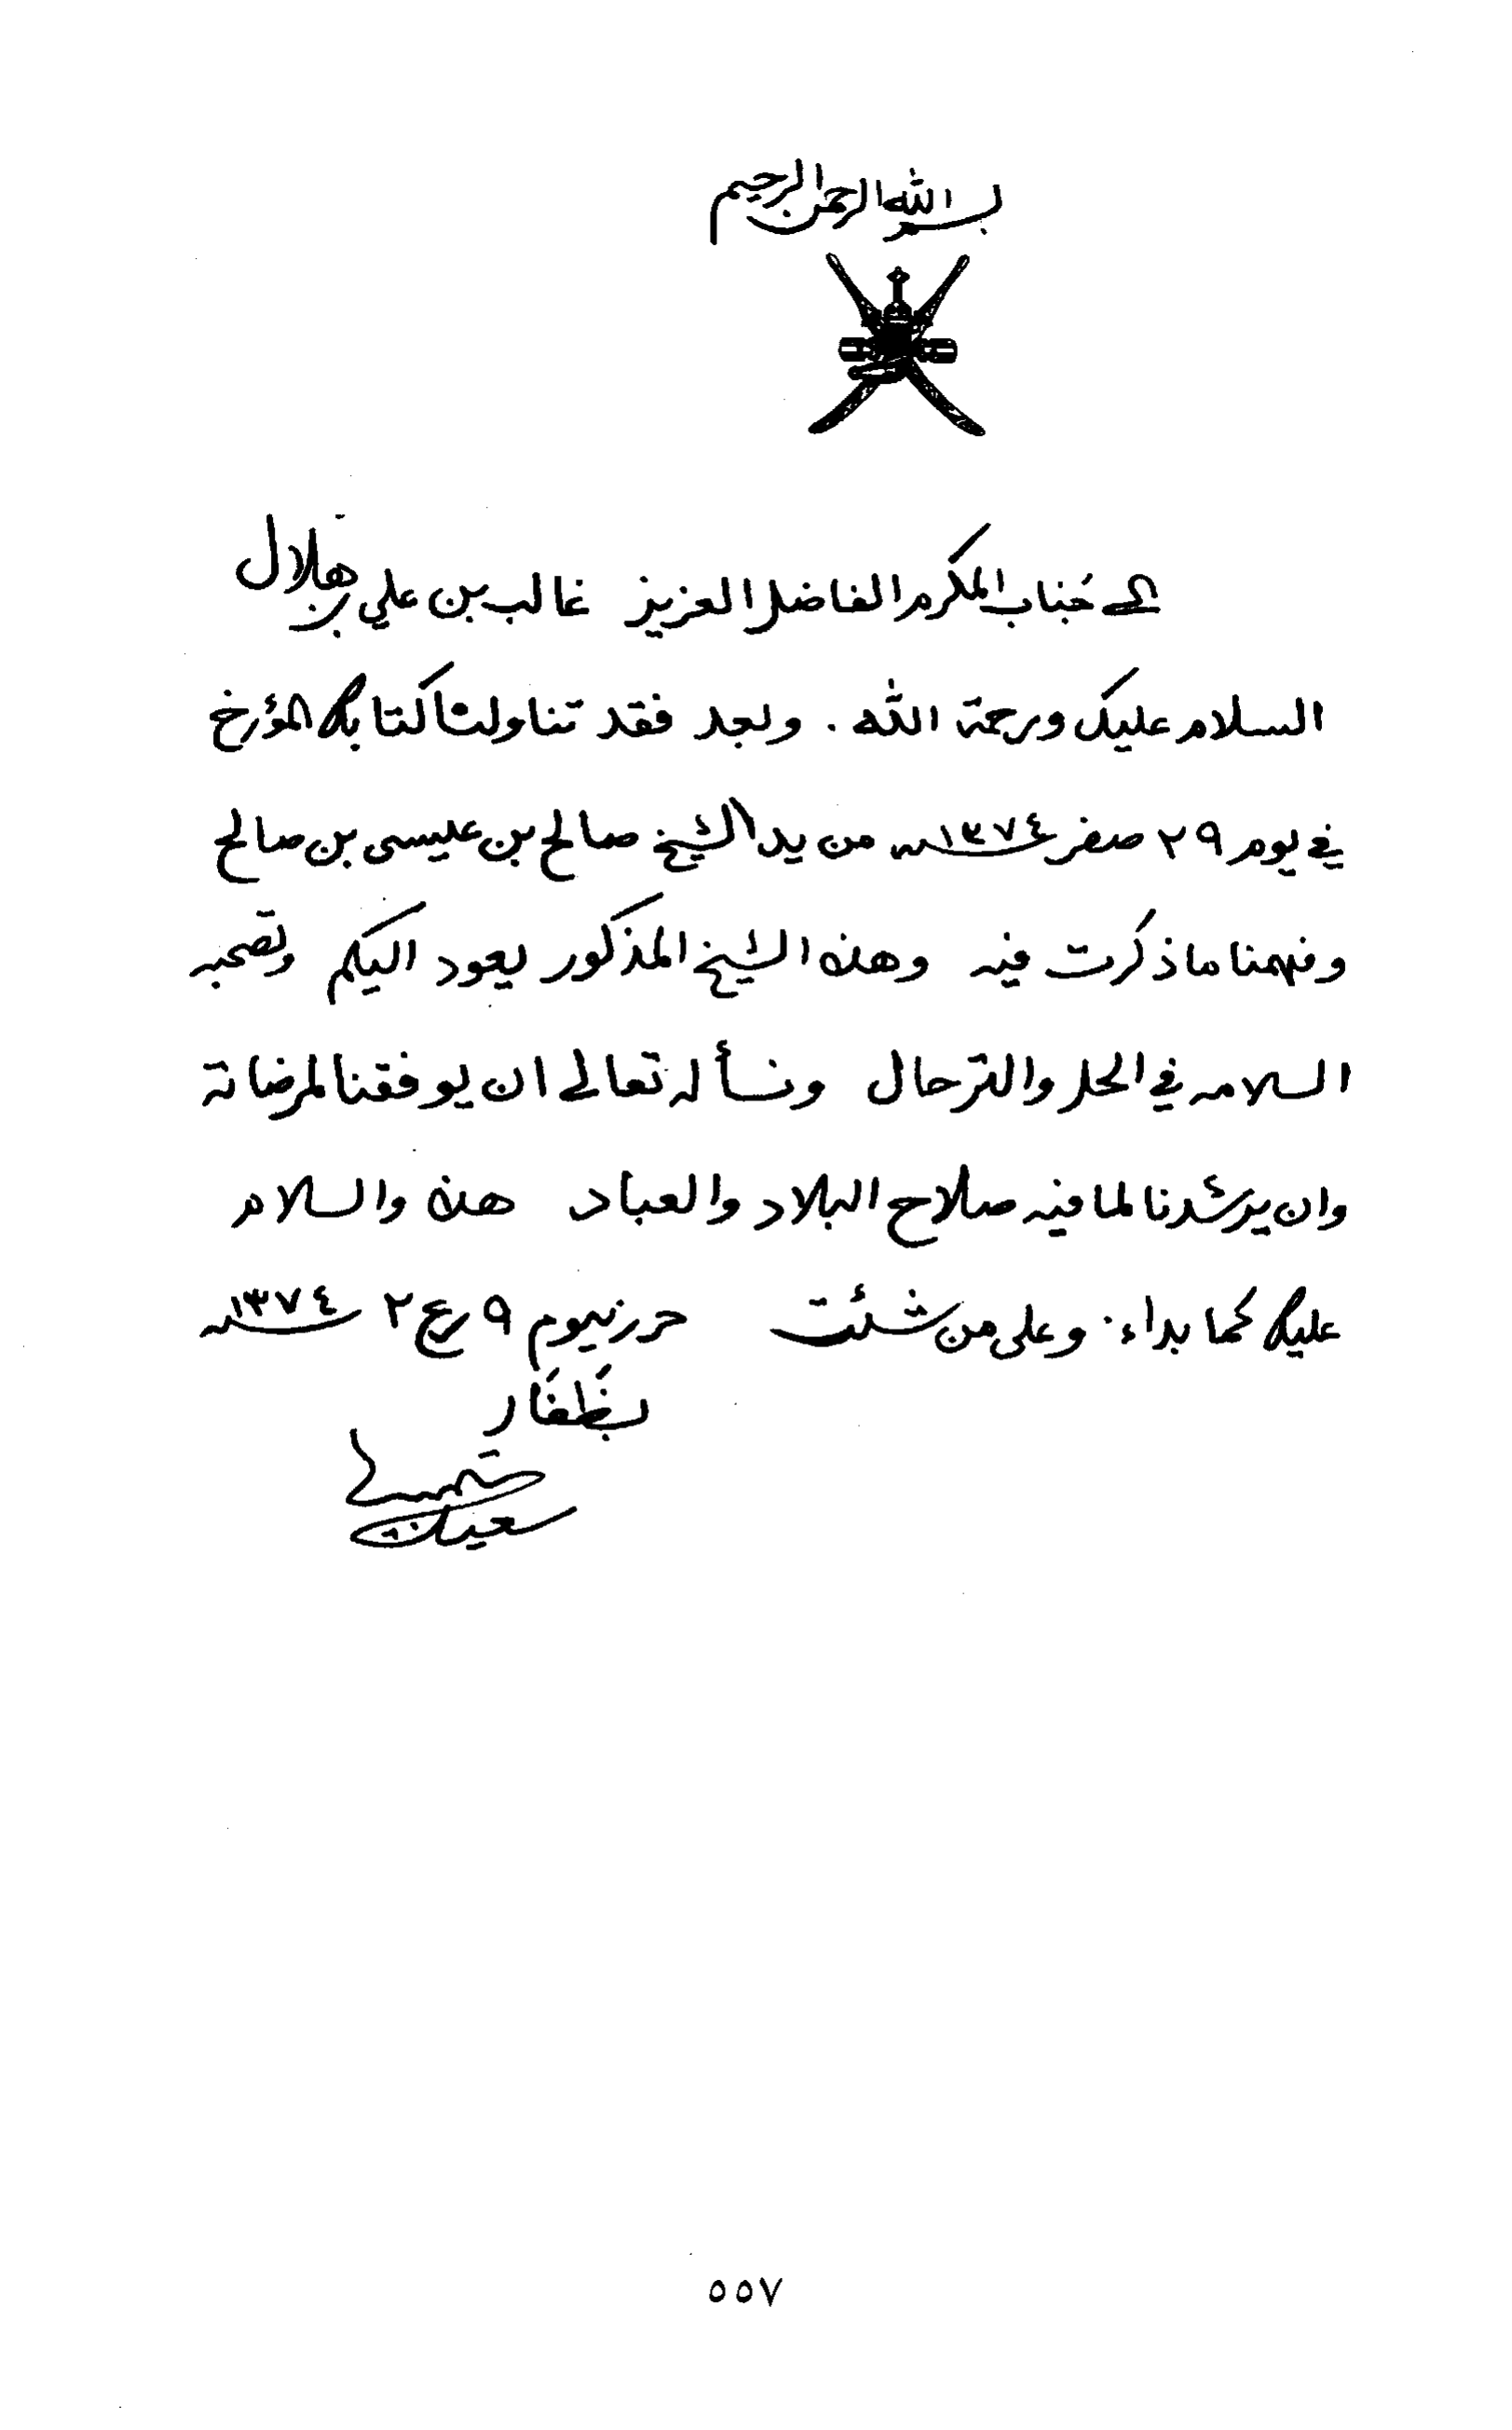 بسم الله الرحمن الرحيم
الى جناب المكرم الفاضل العزيز غالب بن علي بن هلال
السلام عليك ورحمة الله . وبعد فقد تناولنا كتابك المؤرخ
في يوم ٢٩ صفر سنة ١٣٧٤هـ من يد الشيخ صالح بن عيسى بن صالح
وفهمنا ما ذكرت فيه وهذا الشيخ المذكور يعود اليكم وتصحبه
السلامه في الحل والترحال ونسأله تعالى ان يوفقنا لمرضاته
وان يرشدنا لما فيه صلاح البلاد والعباد هذا والسلام
عليك كما بداء. وعلى من شئت حرر بيوم ٩ ربيع ٢ سنة ١٣٧٤هـ
بظَفَار
سعيد
٥٥٧